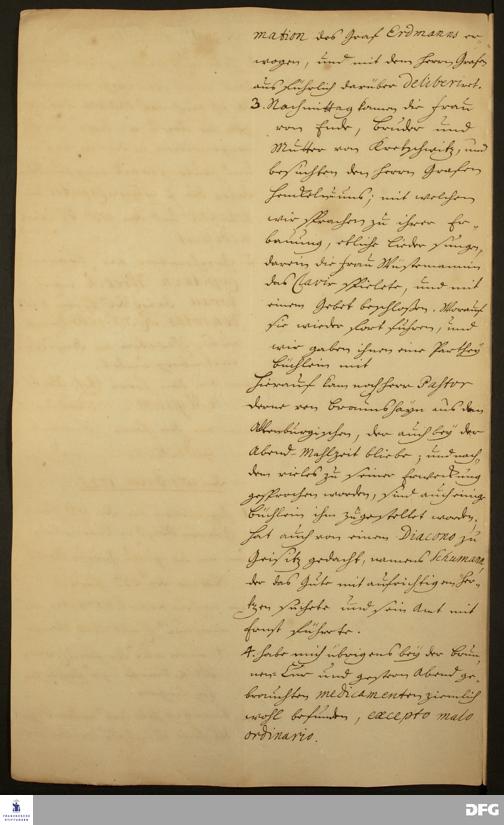 mation des Graf Erdmanns er-
wogen, und mit dem Herrn Grafen
ausführlich darüber deliberiret.
3. Nachmittag kamen die Frau
von Ende, Bruder und
Mutter von Kretschwitz, und
besuchten den Herrn Grafen
Henkel u. uns; mit welchen
wir sprachen zu ihrer Er-
bauung, etliche Lieder sungen,
darein die Frau Wüstemannin
das Clavir spielete, und mit
einem Gebet beschloßen. Worauf
sie wieder fort führen, und
wir gaben ihnen eine Parthey
Büchlein mit
Hierauf kam noch Herr Pastor
von Braunshayn aus dem
Altenburgischen, der auch bey der
Abend-Mahlzeit bliebe; und nach-
dem vieles zu seiner Erweckung
gesprochen worden, sind auch einige
Büchlein ihm zugestellet worden,
hat auch von einem Diacono zu
gedacht, namens Schumann,
der das Gute mit aufrichtigem Her-
tzen suchete und sein Amt mit
Ernst führete.
4. habe mich übrigens bey der Brun-
nen-Cur und gestern Abend ge-
brauchten medicamenten ziemlich
wohl befunden, excepto malo
ordinario.
FRANCKESCHE
STIFTUNGEN
DFG